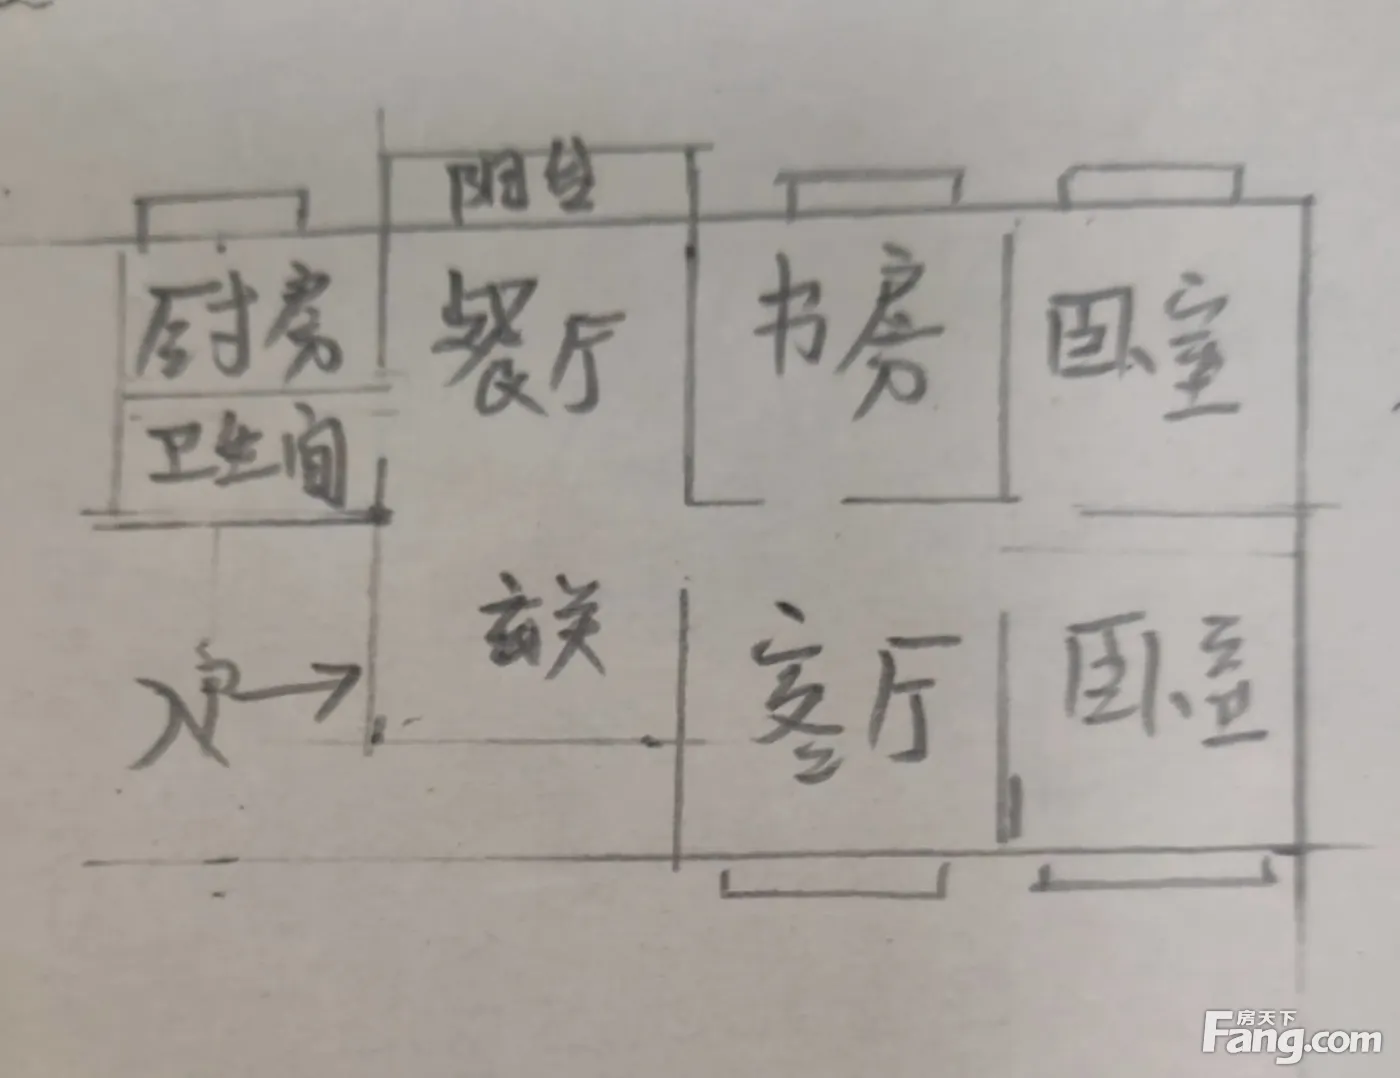 阳台
厨房 餐厅 书房 卧室
卫生间
玄关 客厅 卧室
入户
房天下
Fang.com